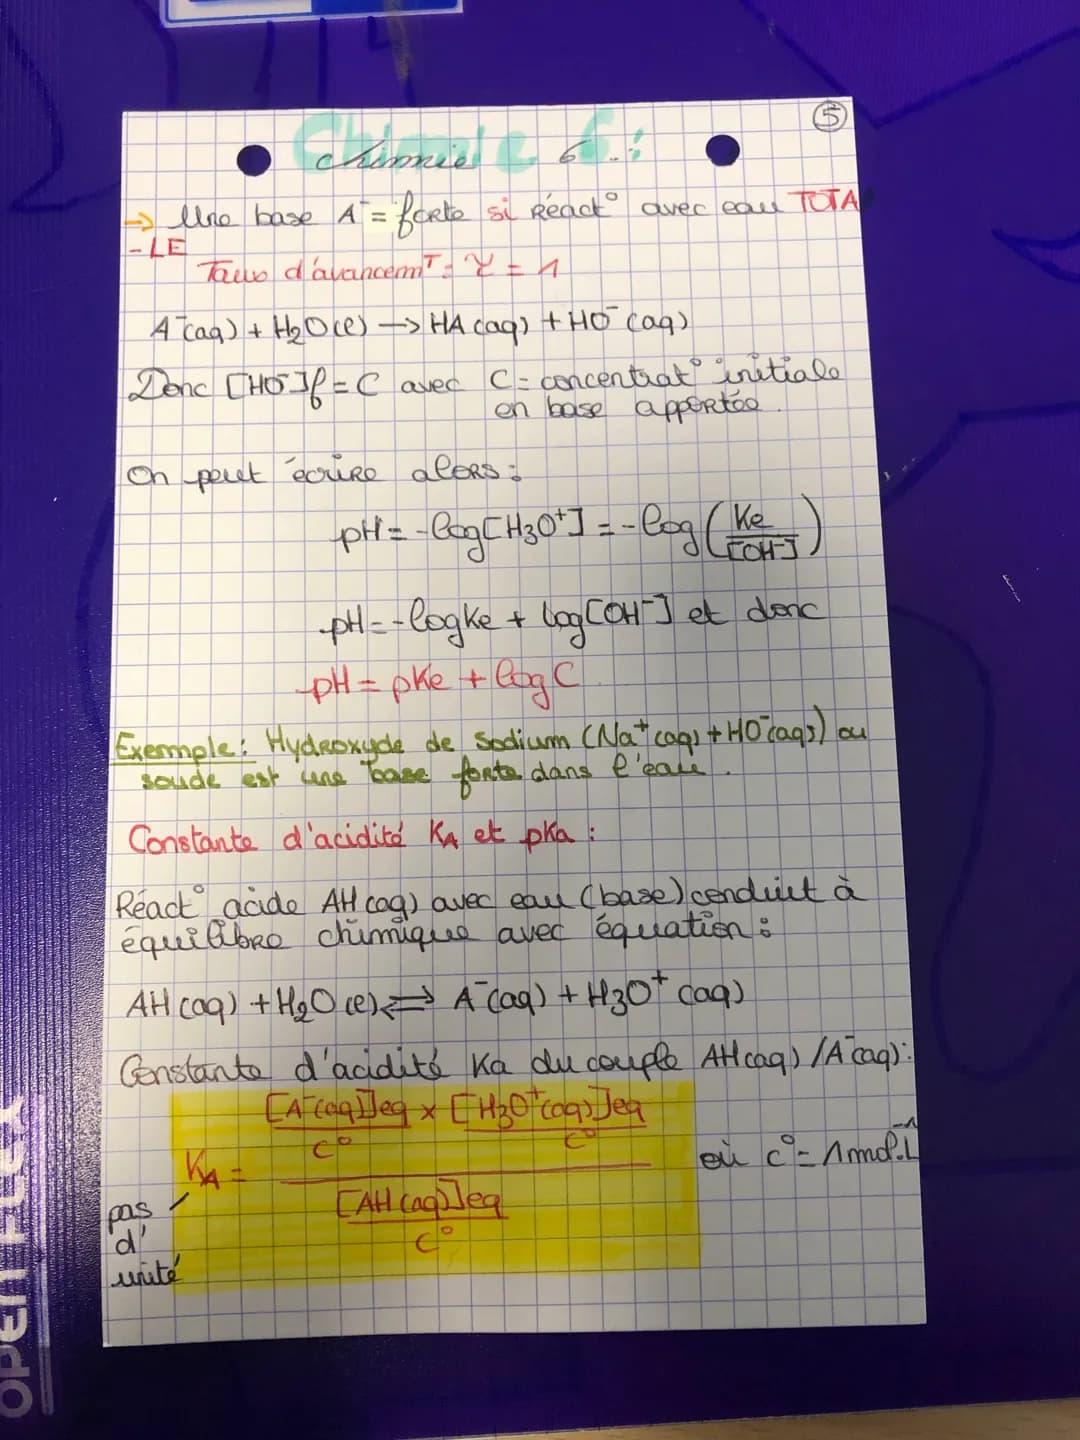 ⑤
Chimie 6 :
→ Une base A⁻ = forte si Réact° avec eau TOTA
-LE
Taux d'avancemT : γ = 1
A⁻(aq) + H₂O(l) → HA(aq) + HO⁻(aq)
Donc [HO⁻]f = C avec C = concentrat° initiale
en base apportée.
On peut écrire alors :
pH = -log[H₃O⁺] = -log(Ke/[OH⁻])
pH = -logKe + log[OH⁻] et donc
pH = pKe + log C
Exemple : Hydroxyde de Sodium (Na⁺(aq) + HO⁻(aq)) ou
soude est une base forte dans l'eau.
Constante d'acidité KA et pKa :
Réact° acide AH(aq) avec eau (base) conduit à
équilibre chimique avec équation :
AH(aq) + H₂O(l) ⇌ A⁻(aq) + H₃O⁺(aq)
Constante d'acidité Ka du couple AH(aq)/A⁻(aq) :
[A⁻(aq)]eq/c° × [H₃O⁺(aq)]eq/c°
KA = où c° = 1mol.L⁻¹
[AH(aq)]eq/c°
pas
d'
unité
OPEN FLEX